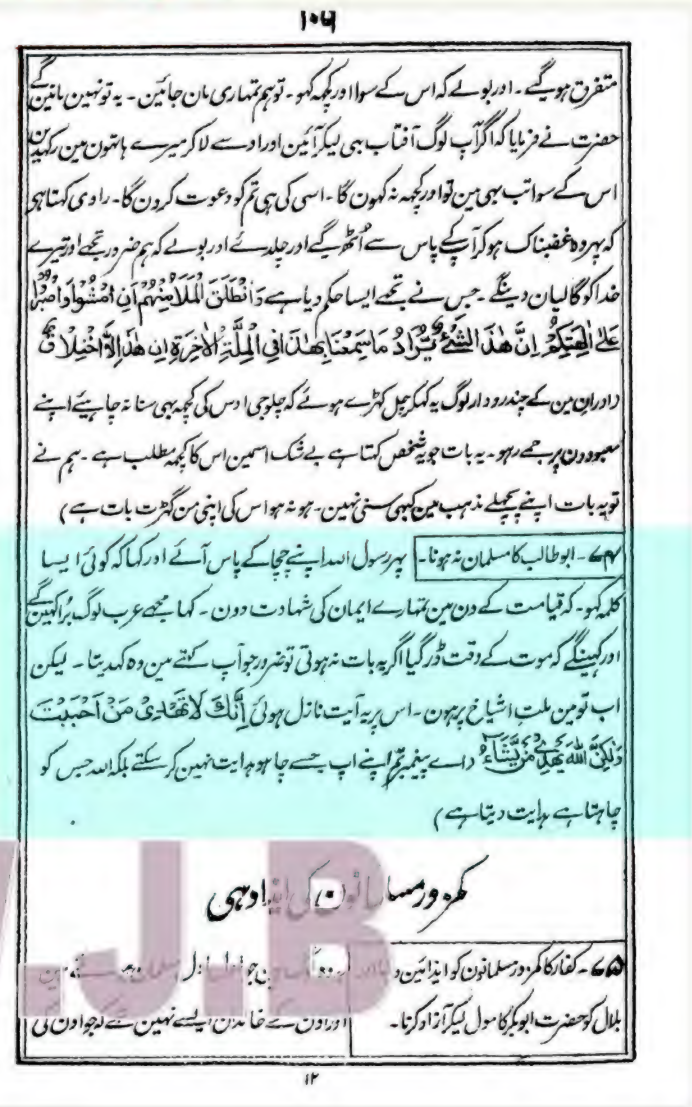 ۱۰۴
متفرق ہو گیے ۔ اور بولے کہ اس کے سوا اور کچہہ کہو ۔ تو ہم تمہاری مان جائین ۔ یہ تو نہین مانین گے
حضرت نے فرمایا کہ اگر آپ لوگ آفتاب بہی لیکر آئین اور اوسے لا کر میرے ہاتہون مین رکہدین
اس کے سوا تب بہی مین تو اور کچہہ نہ کہون گا ۔ اسی کی ہی تم کو دعوت کرون گا ۔ راوی کہتا ہی
کہ پہر وہ غضبناک ہو کر آپ کے پاس سے اُٹھ گیے اور چلدئے اور بولے کہ ہم ضرور تجھے اور تیرے
خدا کو گالیان دینگے ۔ جس نے تجھے ایسا حکم دیا ہے وَانْطَلَقَ الْمَلَأُ مِنْهُمْ اَنِ امْشُوْا وَاصْبِرُوْا
عَلٰى اٰلِهَتِكُمْ اِنَّ هٰذَا الشَّیْءٌ یُّرَادُ مَا سَمِعْنَا بِهٰذَا فِی الْمِلَّةِ الْاٰخِرَةِ اِنْ هٰذَا اِلَّا اخْتِلَاقٌ
(اور ان مین کے چند رودار لوگ یہ کہکر چل کہڑے ہوئے کہ چلو جی اوس کی کچہہ بہی سنا نہ چاہیئے اپنے
معبودون پر جمے رہو ۔ یہ بات جو یہ شخص کہتا ہے بے شک اسمین اس کا کچہہ مطلب ہے ۔ ہم نے
تو یہ بات اپنے پچھلے مذہب مین کبہی سنی نہین ۔ ہو نہ ہو اس کی اپنی من گھڑت بات ہے)
۷۴ ۔ ابو طالب کا مسلمان نہ ہونا ۔ پہر رسول اللہ اپنے چچا کے پاس آئے اور کہا کہ کوئی ایسا
کلمہ کہو ۔ کہ قیامت کے دن مین تمہارے ایمان کی شہادت دون ۔ کہا مجھے عرب لوگ بُرا کہین گے
اور کہینگے کہ موت کے وقت ڈر گیا اگر یہ بات نہ ہوتی تو ضرور جو آپ کہتے مین وہ کہدیتا ۔ لیکن
اب تو مین ملتِ اشیاخ پر ہون ۔ اس پر یہ آیت نازل ہوئی اِنَّكَ لَا تَهْدِیْ مَنْ اَحْبَبْتَ
وَلٰكِنَّ اللّٰهَ یَهْدِیْ مَنْ یَّشَآءُ (اے پیغمبر تم اپنے اپ جسے چاہو ہدایت نہین کر سکتے بلکہ اللہ جس کو
چاہتا ہے ہدایت دیتا ہے)
کمزور مسلمانون کی ایذا دہی
۷۵ ۔ کفار کا کمزور مسلمانون کو ایذائین دینا اور
بلال کو حضرت ابوبکر کا مول لیکر آزاد کرنا ۔ اور اون کے خاندان ایسے نہین تھے کہ جو اون کی
۱۲
J.B